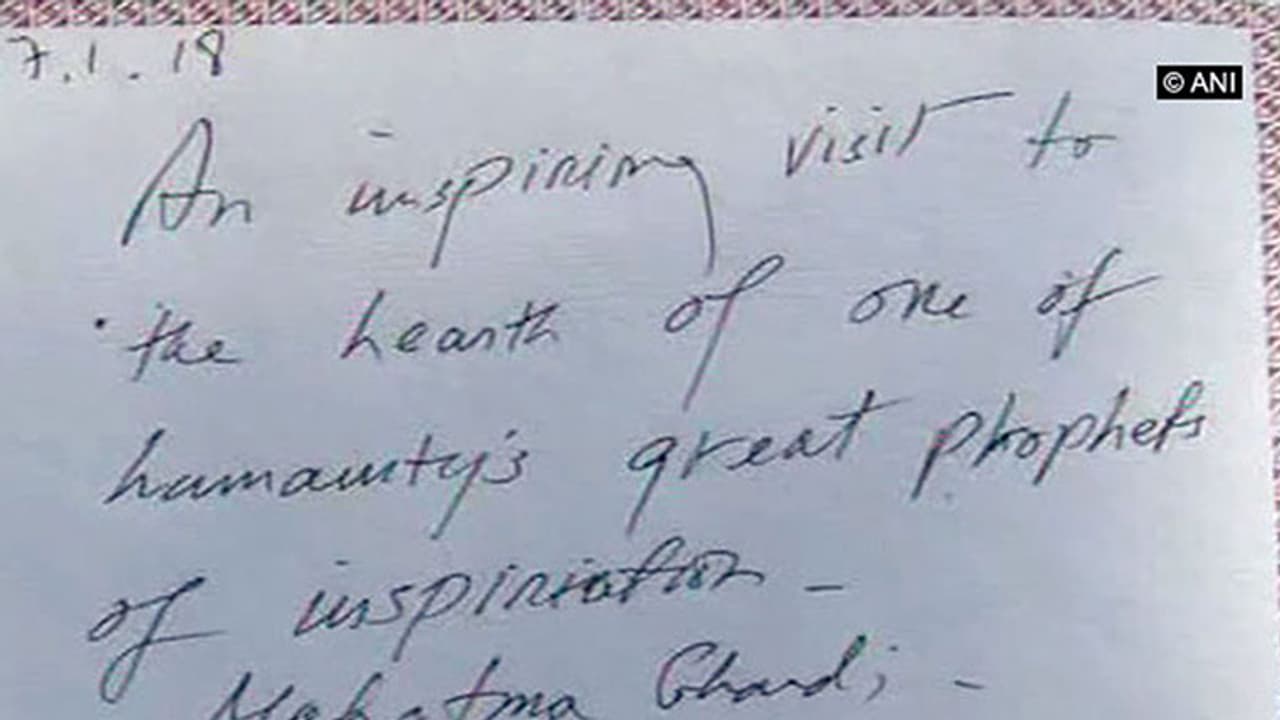 7.1.18
© ANI
An inspiring visit to
the hearth of one of
humanity's great prophets
of inspiration -
Mahatma Ghandi -